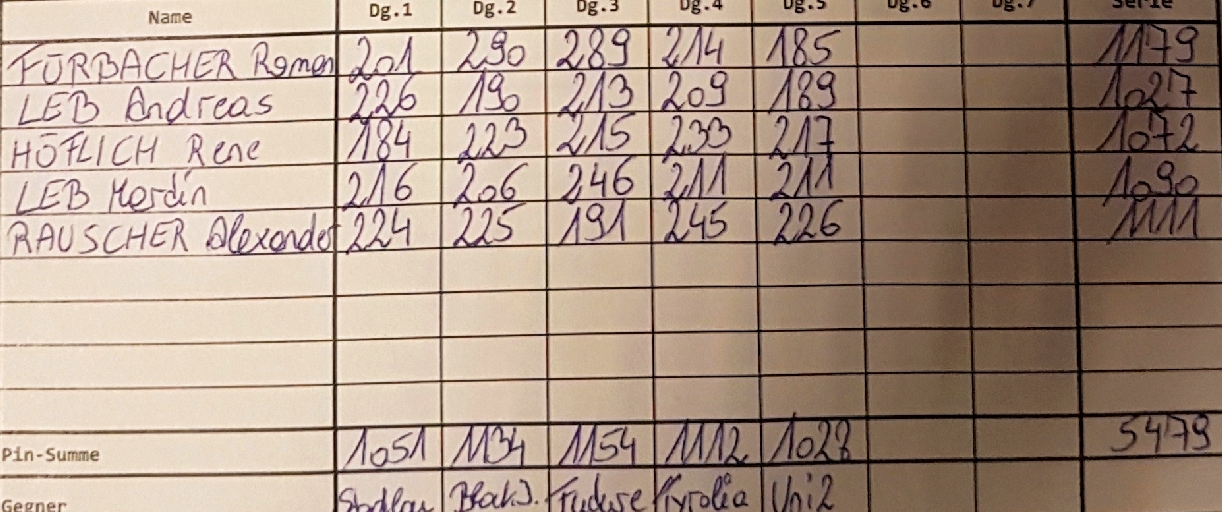 Name Dg.1 Dg.2 Dg.3 Dg.4 Dg.5 Dg.6 Dg.7 Serie
FÜRBACHER Roman 201 290 289 214 185 1179
LEB Andreas 226 190 213 209 189 1027
HÖFLICH Rene 184 223 215 233 217 1072
LEB Martin 216 206 246 211 211 1090
RAUSCHER Alexander 224 225 191 245 226 1111
Pin-Summe 1051 1134 1154 1112 1028 5479
Gegner Stadlau BlackJ. Future Tyrolia Uni2